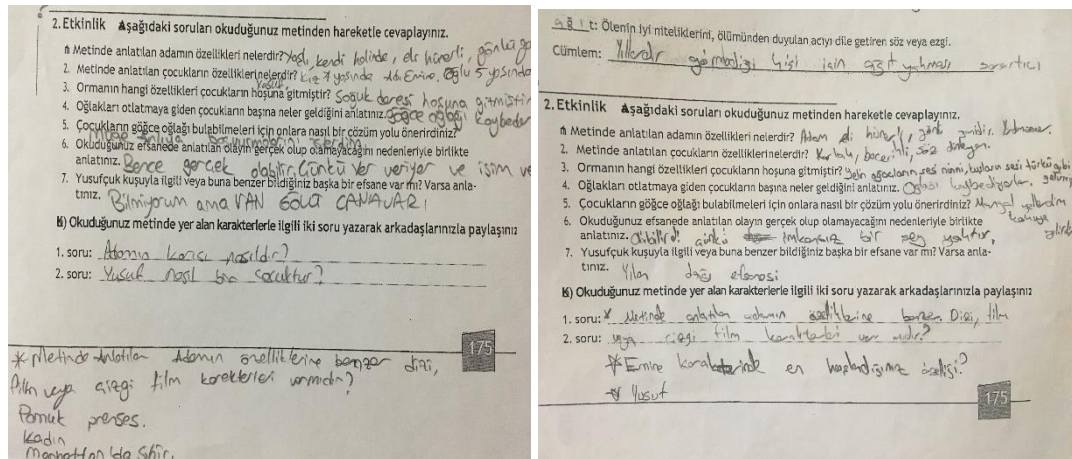 2. Etkinlik Aşağıdaki soruları okuduğunuz metinden hareketle cevaplayınız.
1. Metinde anlatılan adamın özellikleri nelerdir? Yaşlı, kendi halinde, eli hünerli, gönlü
2. Metinde anlatılan çocukların özellikleri nelerdir? Kız 7 yaşında Adı Emine. Oğlu 5 yaşında
Yusuf.
3. Ormanın hangi özellikleri çocukların hoşuna gitmiştir? Soğuk deresi hoşuna gitmiştir
4. Oğlakları otlatmaya giden çocukların başına neler geldiğini anlatınız. Göğce oğlağı kaybeder
5. Çocukların göğçe oğlağı bulabilmeleri için onlara nasıl bir çözüm yolu önerirdiniz?
6. Okuduğunuz efsanede anlatılan olayın gerçek olup olamayacağını nedenleriyle birlikte
anlatınız. Bence gerçek olabilir. Çünkü yer veriyor ve isim ve
7. Yusufçuk kuşuyla ilgili veya buna benzer bildiğiniz başka bir efsane var mı? Varsa anla-
tınız. Bilmiyorum ama VAN GÖLÜ CANAVARI
B) Okuduğunuz metinde yer alan karakterlerle ilgili iki soru yazarak arkadaşlarınızla paylaşınız
1. soru: Adamın karısı nasıldır?
2. soru: Yusuf nasıl bir çocuktur?
175
* Metinde Anlatılan Adamın özelliklerine benzer dizi,
film veya çizgi film karekterleri varmıdır?
Pamuk prenses.
Kadın
Manhattan'da Sihir.
ağıt: Ölenin iyi niteliklerini, ölümünden duyulan acıyı dile getiren söz veya ezgi.
Cümlem: Yıllardır görmediği kişi için ağıt yakması şaşırtıcı
2. Etkinlik Aşağıdaki soruları okuduğunuz metinden hareketle cevaplayınız.
1. Metinde anlatılan adamın özellikleri nelerdir? Adam eli hünerli,
2. Metinde anlatılan çocukların özellikleri nelerdir? becerikli, söz dinleyen.
3. Ormanın hangi özellikleri çocukların hoşuna gitmiştir? Yelin ağaçların sesi ninni, kuşların sesi türkü gibi
4. Oğlakları otlatmaya giden çocukların başına neler geldiğini anlatınız. Oğlağı kaybediyorlar.
5. Çocukların göğçe oğlağı bulabilmeleri için onlara nasıl bir çözüm yolu önerirdiniz?
6. Okuduğunuz efsanede anlatılan olayın gerçek olup olamayacağını nedenleriyle birlikte
anlatınız. Olabilirdi çünkü imkansız bir şey yoktur.
7. Yusufçuk kuşuyla ilgili veya buna benzer bildiğiniz başka bir efsane var mı? Varsa anla-
tınız. Yılan dağı efsanesi
B) Okuduğunuz metinde yer alan karakterlerle ilgili iki soru yazarak arkadaşlarınızla paylaşınız
1. soru: * Metinde anlatılan adamın özelliklerine benzer Dizi, film
2. soru: veya çizgi film karakterleri var mıdır?
* Emine karakterinde en hoşlandığınız özelliği?
* Yusuf
175